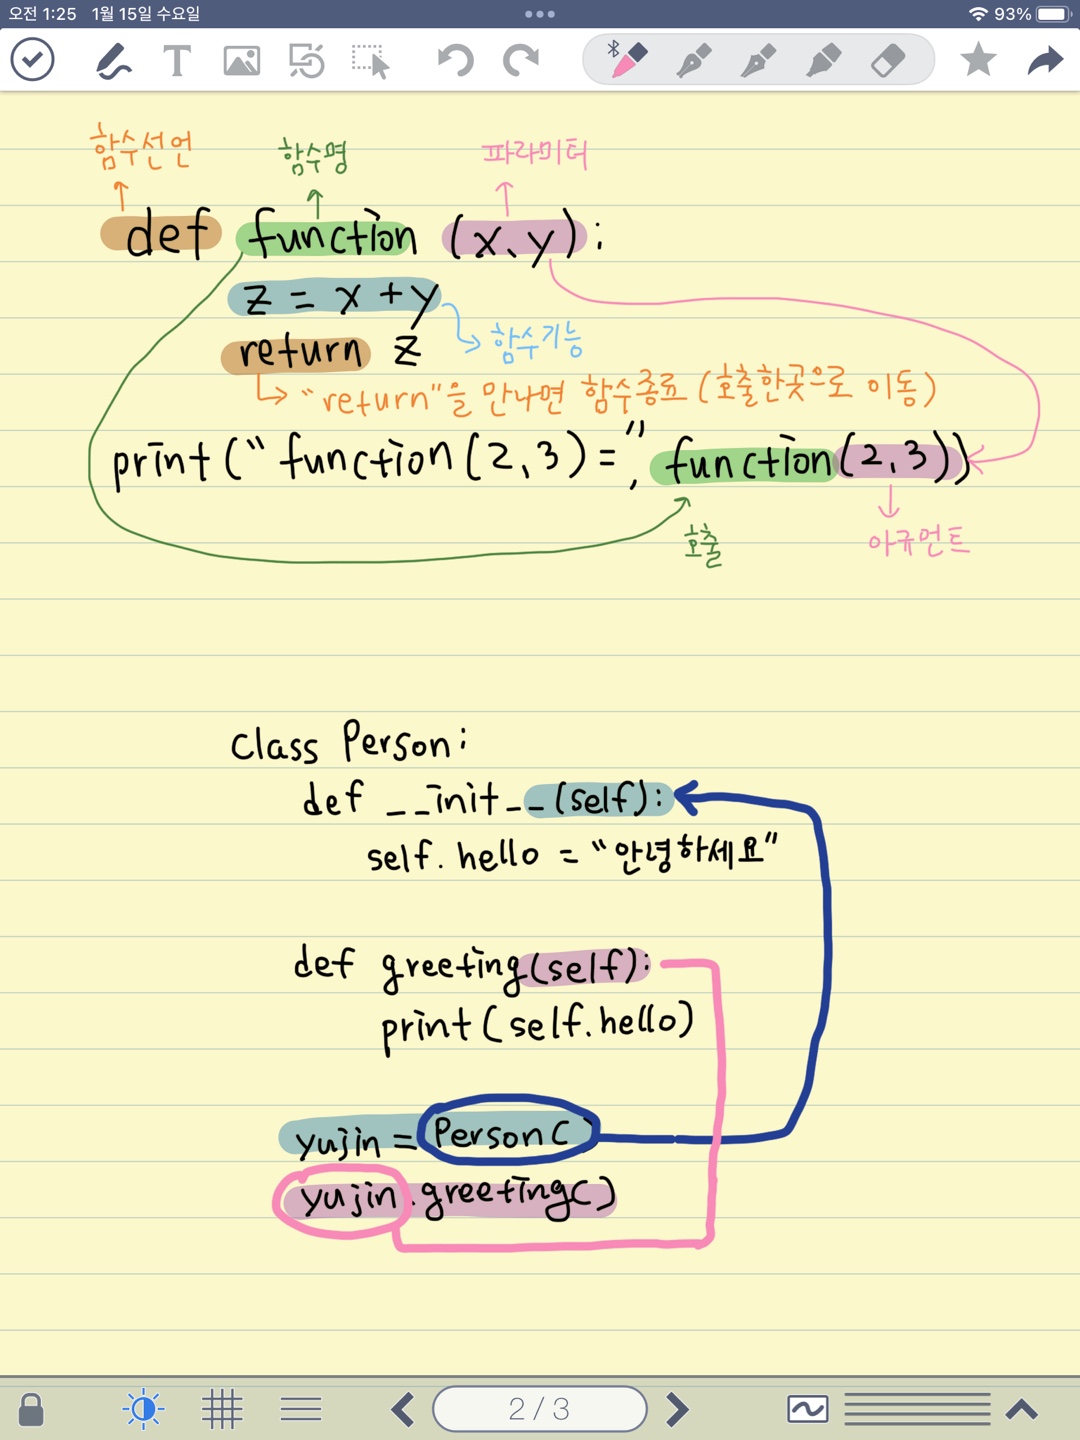 오전 1:25 1월 15일 수요일
93%
T
함수선언 함수명 파라미터
def function (x, y):
z = x + y
함수기능
return z
"return"을 만나면 함수종료 (호출한곳으로 이동)
print(" function(2,3)=", function(2,3))
호출 아규먼트
Class Person:
def __init__(self):
self.hello = "안녕하세요"
def greeting(self):
print(self.hello)
yujin = Person()
yujin.greeting()
2 / 3